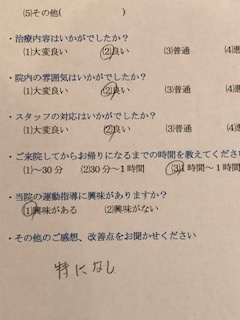 (5)その他(　　　　　)
・治療内容はいかがでしたか？
(1)大変良い　(2)良い　(3)普通　(4)悪
・院内の雰囲気はいかがでしたか？
(1)大変良い　(2)良い　(3)普通　(4)悪
・スタッフの対応はいかがでしたか？
(1)大変良い　(2)良い　(3)普通　(4)
・ご来院してからお帰りになるまでの時間を教えてくださ
(1)～30分　(2)30分～1時間　(3)1時間～1時
・当院の運動指導に興味がありますか？
(1)興味がある　(2)興味がない
・その他のご感想、改善点をお聞かせください
特になし